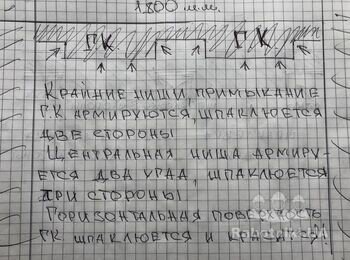 1800 м.м.
Г.К. Г.К.
КРАЙНИЕ НИШИ, ПРИМЫКАНИЕ
Г.К АРМИРУЮТСЯ, ШПАКЛЮЕТСЯ
ДВЕ СТОРОНЫ
ЦЕНТРАЛЬНАЯ НИША АРМИРУ-
ЕТСЯ ДВА УГЛА, ШПАКЛЮЕТСЯ
ТРИ СТОРОНЫ.
ГОРИЗОНТАЛЬНАЯ ПОВЕРХНОСТЬ
ГК ШПАКЛЮЕТСЯ И